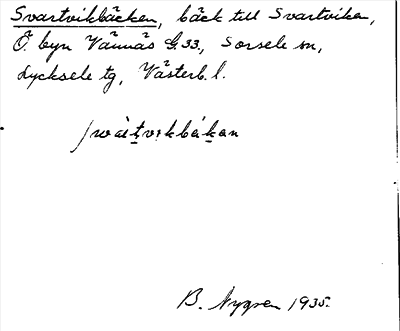 Svartvikbäcken, bäck till Svartviken,
Ö. byn Vännäs G. 33, Sorsele sn,
Lycksele tg, Västerb. l.
B. Nygren 1935.